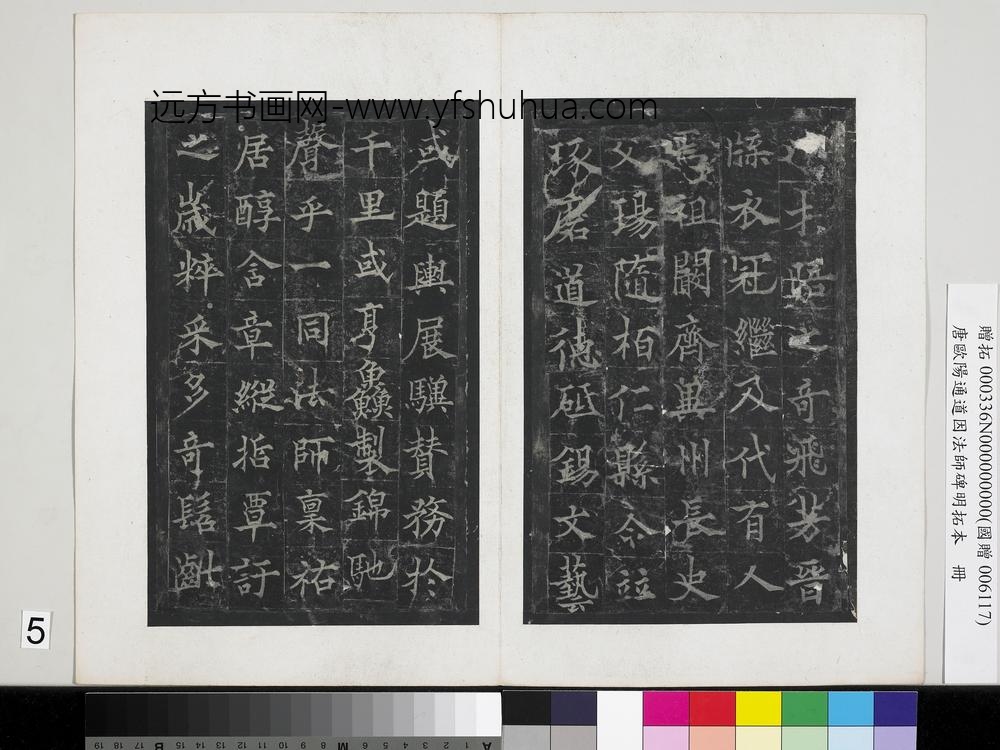 远方书画网-www.yfshuhua.com
才之奇飛芳晉
牒衣冠繼及代有人
焉祖闞齊冀州長史
父瑒隨柏仁縣令並
琢磨道德砥錫文藝
或題輿展驥贊務於
千里或亨鱻製錦馳
聲乎一同法師稟祐
居醇含章縱悊覃訏
之歲粹采多奇髫齔
贈拓 000336N000000000(國贈 006117)
唐歐陽通道因法師碑明拓本 冊
5